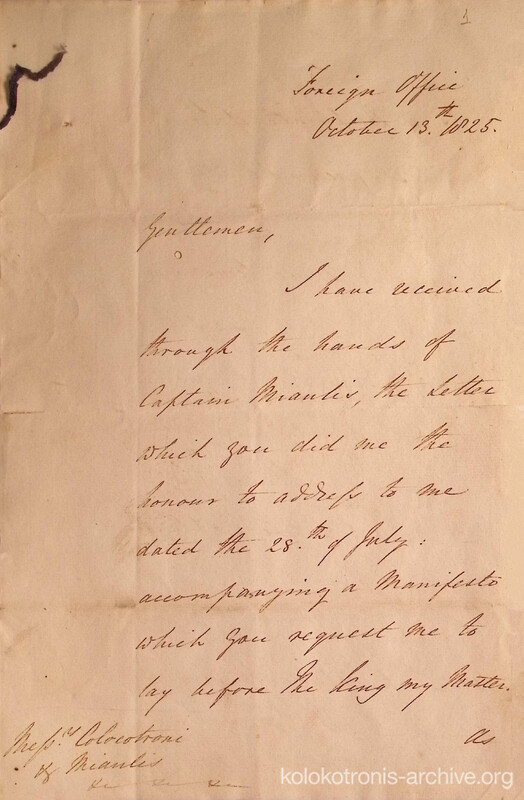 1
Foreign Office
October 13.th 1825.
Gentlemen,
I have received
through the hands of
Captain Miaulis, the Letter
which you did me the
honour to address to me
dated the 28.th of July:
accompanying a Manifesto
which you request me to
lay before The King my Master.
as
Mess.rs Colocotroni
& Miaulis
kolokotronis-archive.org